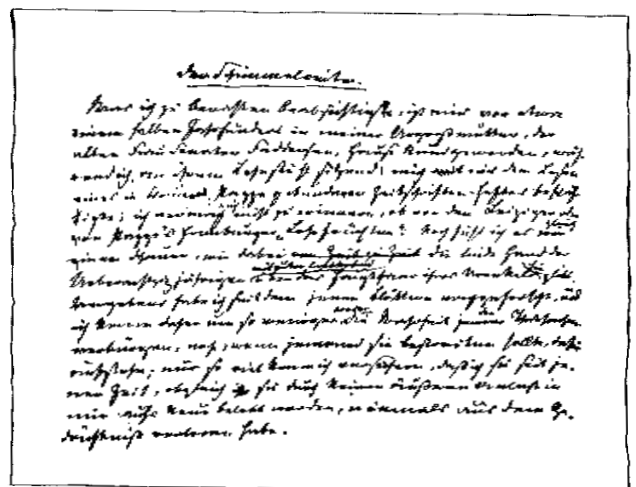 Der Schimmelreiter.
Was ich zu berichten beabsichtige, ist mir vor etwa
einem halben Jahrhundert in meiner Urgroßmutter, der
alten Frau Senator Feddersen, Hause kund geworden, wäh-
rend ich, an ihrem Lehnstuhl sitzend, mich mit dem Lesen
eines in blaue Pappe gebundenen Zeitschriften-Heftes beschäf-
tigte; ich vermag mich nicht zu erinnern, ob von den Leipziger oder
von Pappe's Hamburger Lesefrüchten. Noch fühl ich es gleich
einem Schauer, wie dabei von Zeit zu Zeit die linde Hand der
Ueberachtzigjährigen über das Haupthaar ihres Urenkels
Vergebens habe ich seit dem jenen Blättern nachgeforscht, und
ich kann daher um so weniger weder die Wahrheit der Thatsachen
verbürgen, noch, wenn jemand sie bestreiten sollte, dafür
aufstehen; nur so viel kann ich versichern, daß ich sie seit je-
ner Zeit, obgleich sie durch keinen äußeren Anlaß in
mir aufs Neue belebt wurden, niemals aus dem Ge-
dächtniß verloren habe.